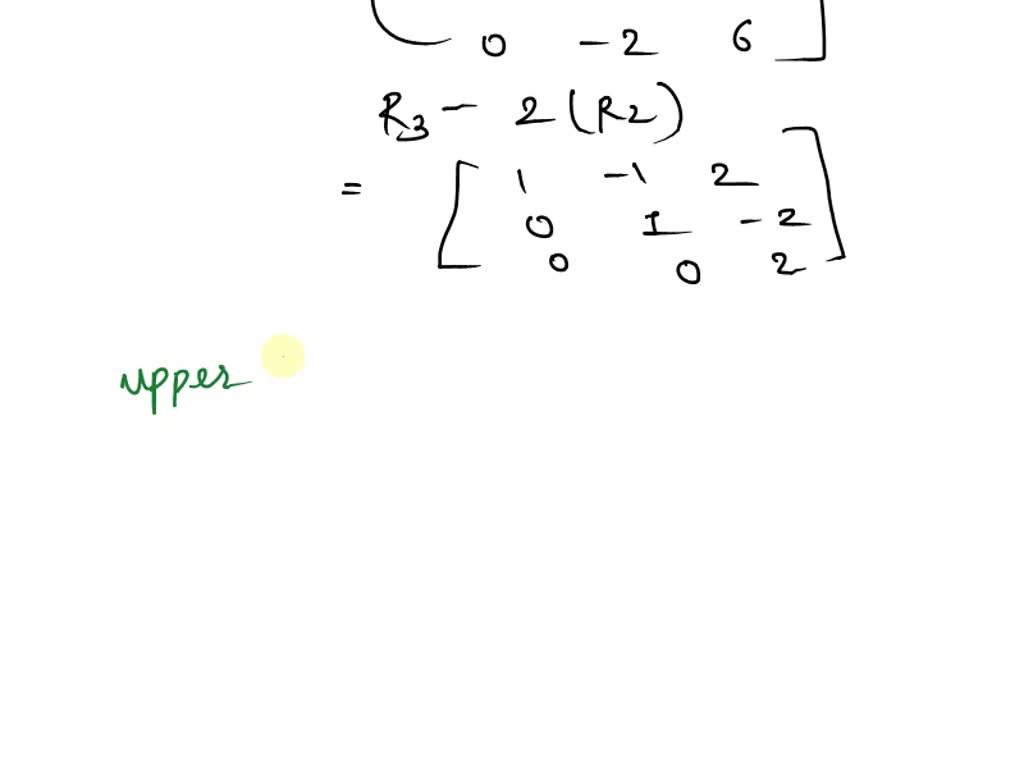 0 -2 6
R3 - 2(R2)
= [ 1 -1 2
0 1 -2
0 0 2 ]
upper